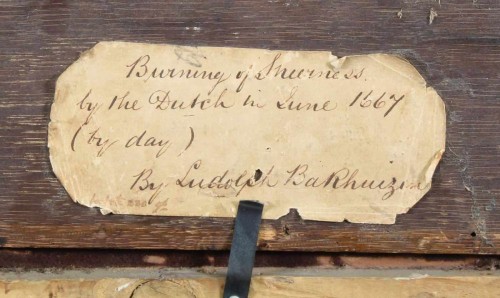 Burning of Sheerness.
by the Dutch in June 1667
(by day)
By Ludolph Bakhuizen